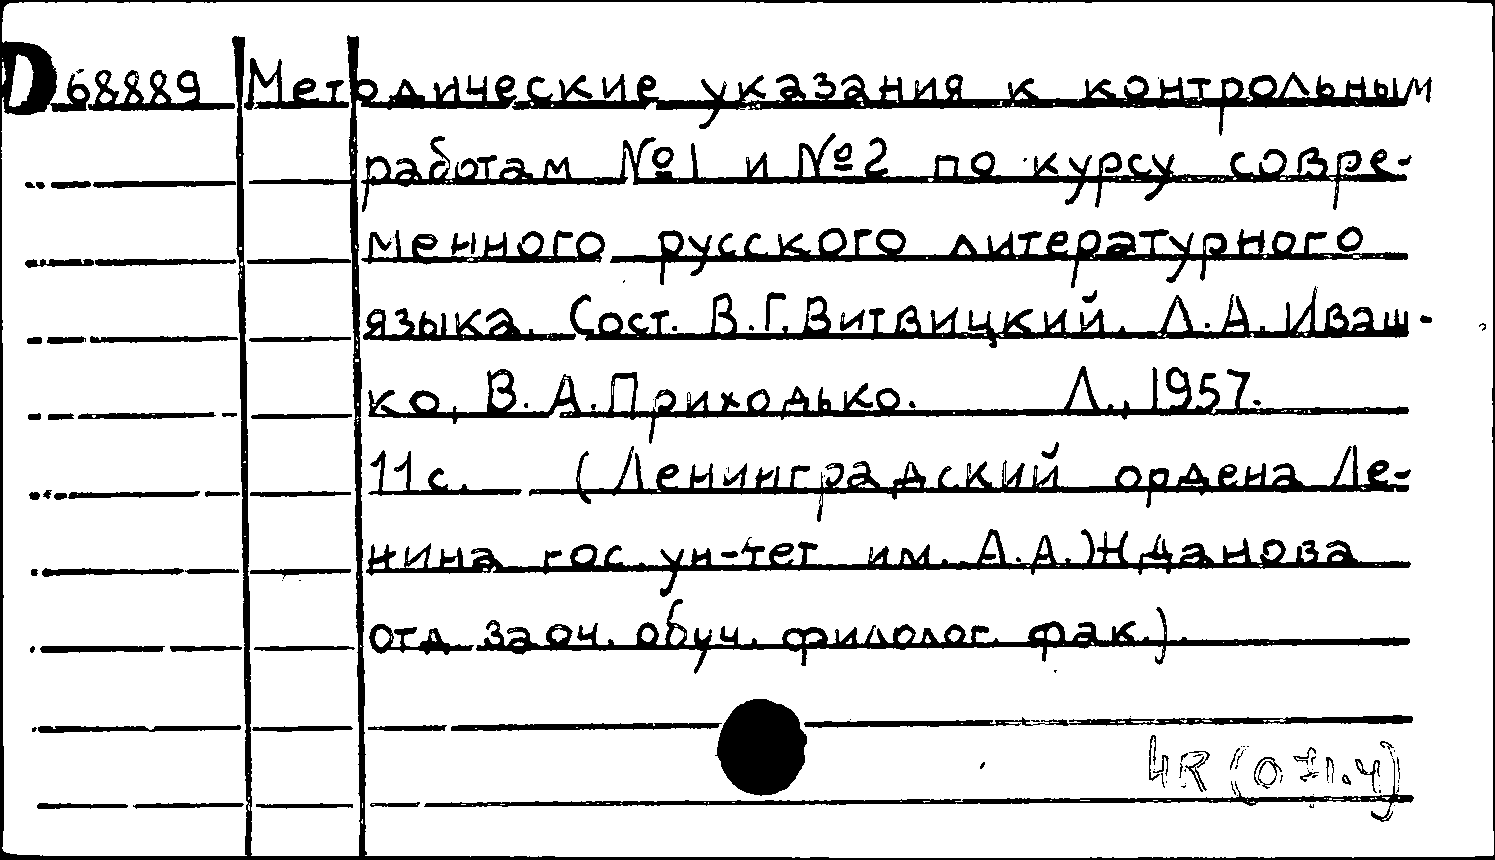 D 68889 Методические указания к контрольным
работам №1 и №2 по курсу совре-
менного русского литературного
языка. Сост. В.Г. Витвицкий. Л.А. Иваш-
ко, В.А. Приходько. Л., 1957.
11 с. (Ленинградский ордена Ле-
нина гос. ун-тет им. А.А. Жданова
отд. заоч. обуч. филолог. фак.).
4R (071.4)